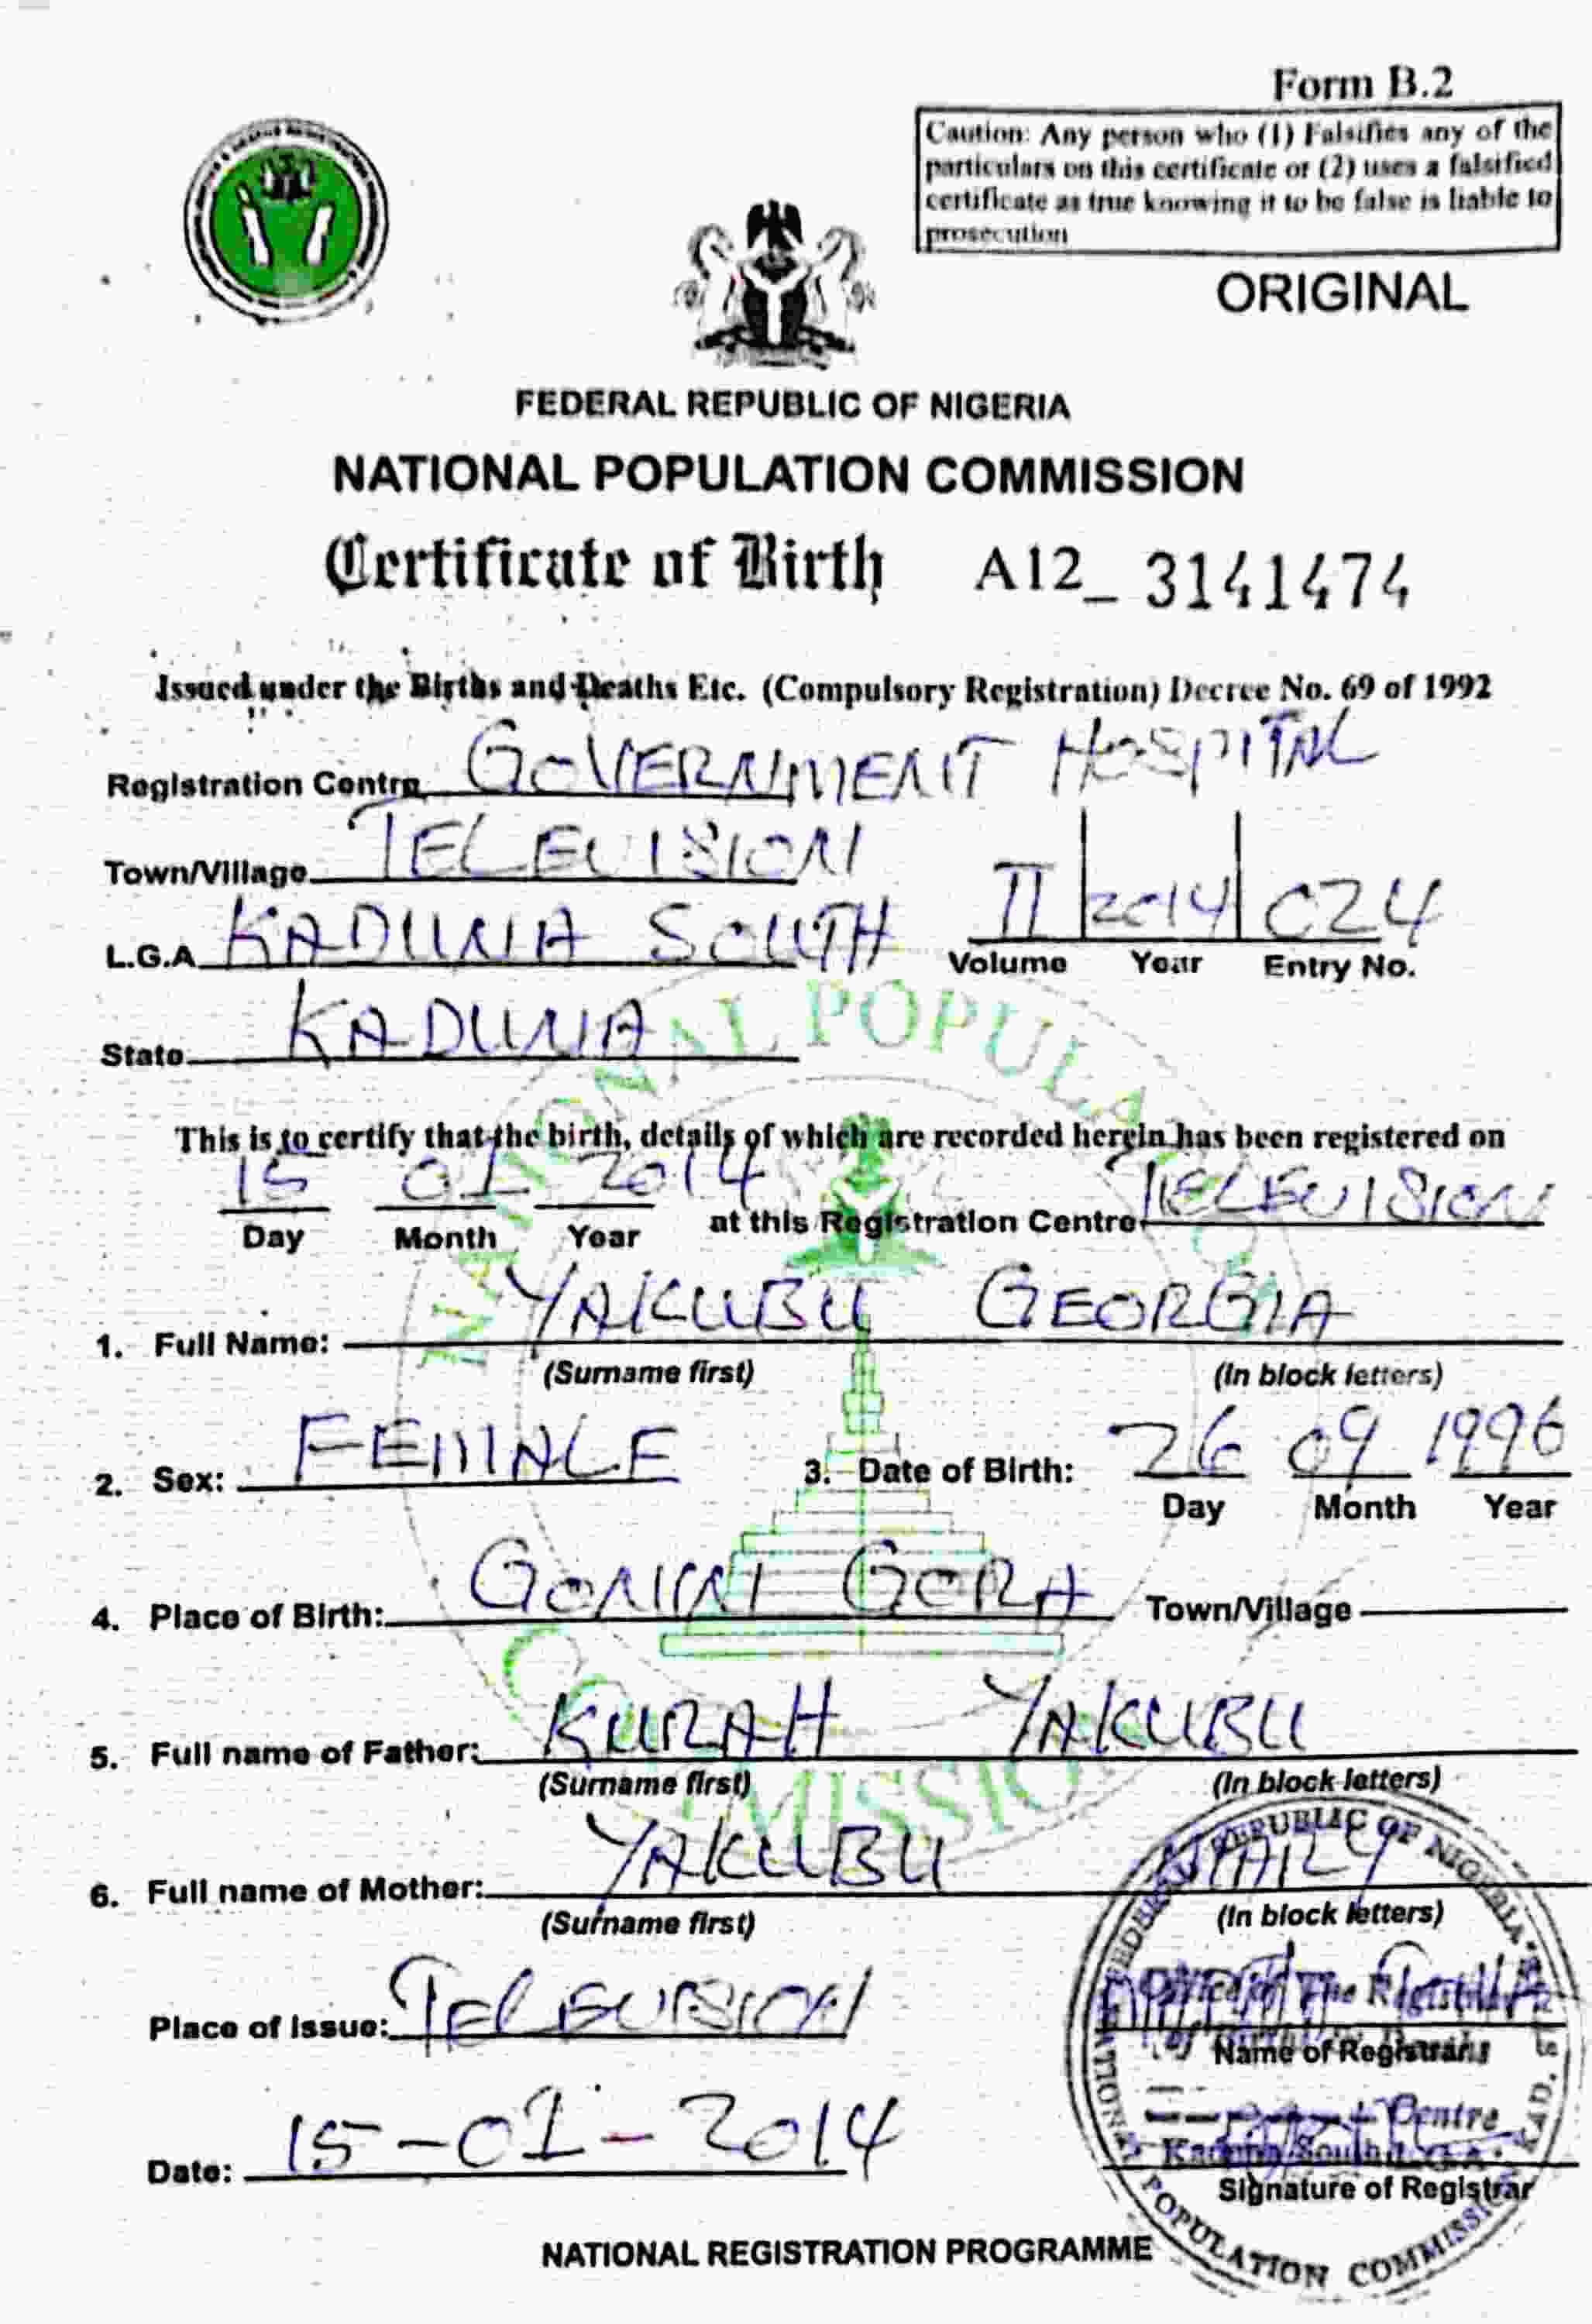 Form B.2
Caution: Any person who (1) Falsifies any of the
particulars on this certificate or (2) uses a falsified
certificate as true knowing it to be false is liable to
prosecution
ORIGINAL
FEDERAL REPUBLIC OF NIGERIA
NATIONAL POPULATION COMMISSION
Certificate of Birth A12_ 3141474
Issued under the Births and Deaths Etc. (Compulsory Registration) Decree No. 69 of 1992
Registration Centre GOVERNMENT HOSPITAL
Town/Village TELEVISION
L.G.A KADUNA SOUTH
II 2014 024
Volume Year Entry No.
State KADUNA
This is to certify that the birth, details of which are recorded herein has been registered on
15 01 2014 at this Registration Centre TELEVISION
Day Month Year
1. Full Name: YAKUBU GEORGIA
(Surname first) (In block letters)
2. Sex: FEMALE 3. Date of Birth: 26 09 1996
Day Month Year
4. Place of Birth: GONIN GORA Town/Village
5. Full name of Father: KURAH YAKUBU
(Surname first) (In block letters)
6. Full name of Mother: YAKUBU
(Surname first) (In block letters)
Place of Issue: TELEVISION
Name of Registrar
Date: 15-01-2014
Signature of Registrar
NATIONAL REGISTRATION PROGRAMME
NATIONAL POPULATION COMMISSION
FEDERAL REPUBLIC OF NIGERIA
Office of The Registrar
Centre
Kaduna South L.G.A.
NATIONAL POPULATION COMMISSION